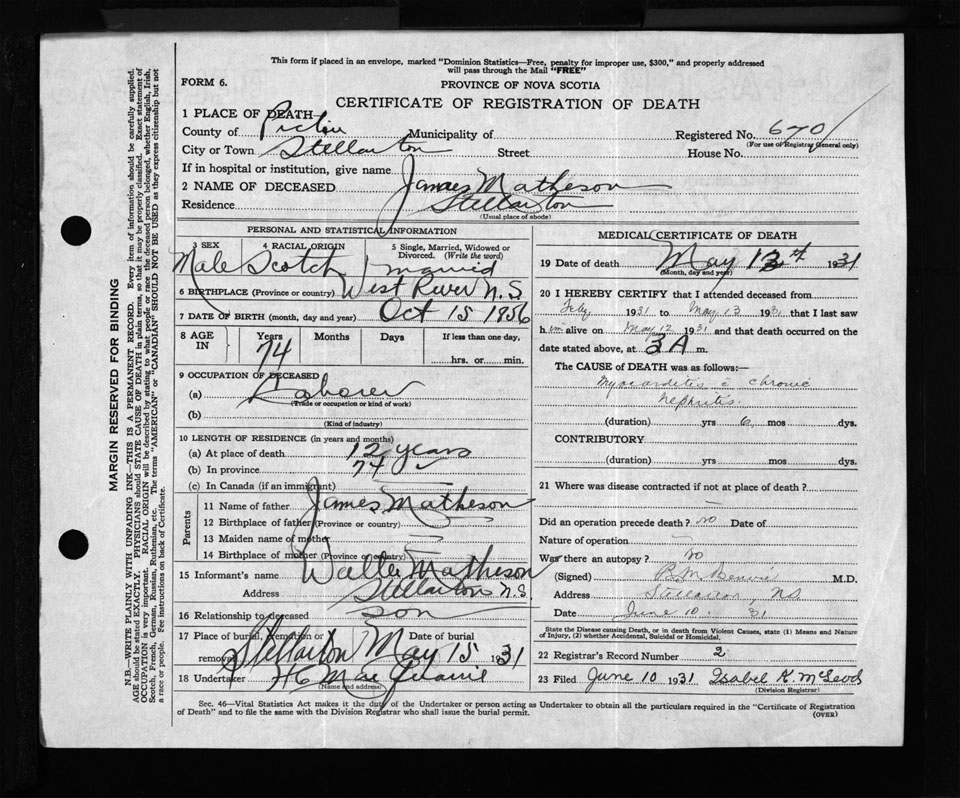 This form if placed in an envelope, marked "Dominion Statistics—Free, penalty for improper use, $300," and properly addressed
will pass through the Mail "FREE"
FORM 6.
PROVINCE OF NOVA SCOTIA
CERTIFICATE OF REGISTRATION OF DEATH
1 PLACE OF DEATH
County of Pictou Municipality of Registered No. 670
(For use of Registrar General only)
City or Town Stellarton Street House No.
If in hospital or institution, give name
2 NAME OF DECEASED James Matheson
Residence Stellarton
(Usual place of abode)
PERSONAL AND STATISTICAL INFORMATION
3 SEX 4 RACIAL ORIGIN 5 Single, Married, Widowed or
Divorced. (Write the word)
Male Scotch married
6 BIRTHPLACE (Province or country) West River N.S
7 DATE OF BIRTH (month, day and year) Oct 15 1856
8 AGE IN Years Months Days If less than one day,
74 hrs. or min.
9 OCCUPATION OF DECEASED
(a) Laborer
(Trade or occupation or kind of work)
(b)
(Kind of industry)
10 LENGTH OF RESIDENCE (in years and months)
(a) At place of death 12 years
(b) In province 74
(c) In Canada (if an immigrant)
Parents
11 Name of father James Matheson
12 Birthplace of father (Province or country)
13 Maiden name of mother
14 Birthplace of mother (Province or country)
15 Informant's name Walter Matheson
Address Stellarton N.S.
16 Relationship to deceased son
17 Place of burial, cremation or removal Stellarton Date of burial May 15 1931
18 Undertaker H C
(Name and address)
MEDICAL CERTIFICATE OF DEATH
19 Date of death May 13th 1931
(Month, day and year)
20 I HEREBY CERTIFY that I attended deceased from
Feby 1931 to May 13 1931 that I last saw
h im alive on May 12 1931 and that death occurred on the
date stated above, at 3 A m.
The CAUSE of DEATH was as follows:—
Myocarditis c̄ chronic
nephritis.
(duration) yrs 6 mos dys.
CONTRIBUTORY
(duration) yrs. mos. dys.
21 Where was disease contracted if not at place of death?
Did an operation precede death? no Date of
Nature of operation
Was there an autopsy? no
(Signed) M.D.
Address Stellarton, NS
Date June 10. 31
State the Disease causing Death, or in death from Violent Causes, state (1) Means and Nature
of Injury, (2) whether Accidental, Suicidal or Homicidal.
22 Registrar's Record Number 2
23 Filed June 10 1931 Isabel K. McLeod
(Division Registrar)
Sec. 46—Vital Statistics Act makes it the duty of the Undertaker or person acting as Undertaker to obtain all the particulars required in the "Certificate of Registration
of Death" and to file the same with the Division Registrar who shall issue the burial permit.
(OVER)
MARGIN RESERVED FOR BINDING
N.B.—WRITE PLAINLY WITH UNFADING INK—THIS IS A PERMANENT RECORD. Every item of information should be carefully supplied.
AGE should be stated EXACTLY. PHYSICIANS should STATE CAUSE OF DEATH in plain terms, so that it may be properly classified. Exact statement of
OCCUPATION is very important. RACIAL ORIGIN will be described by stating to what people or race the deceased person belonged, whether English, Irish,
Scotch, French, German, Russian, Ruthenian, etc. The terms "AMERICAN" or "CANADIAN" SHOULD NOT BE USED as they express citizenship but not
a race or people. See instructions on back of Certificate.